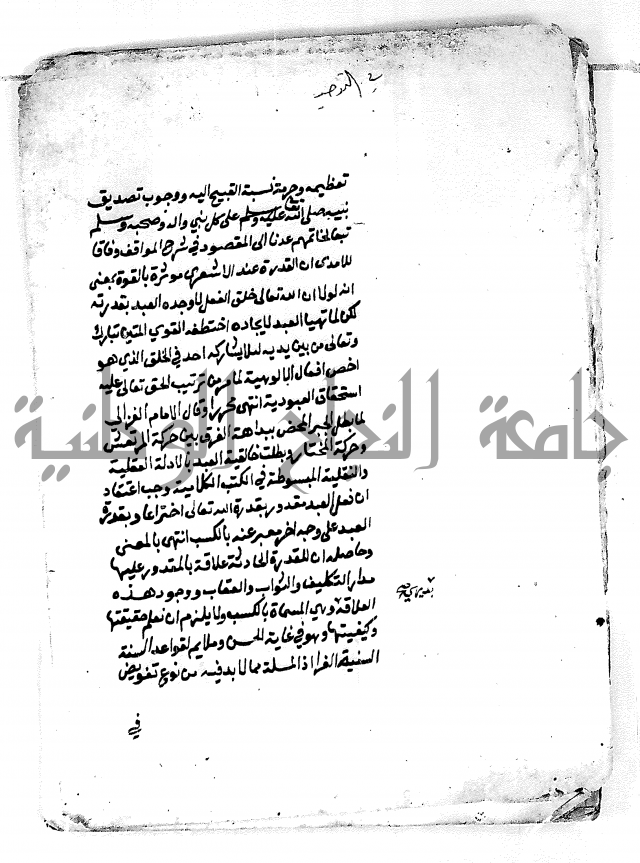 في التوحيد
تعظيمه وحرمة نسبة القبيح اليه ووجوب تصديق
نبيه صلى الله تعالى عليه وسلم على كل نبي واله وصحبه وسلم
تبعا لخاتمهم عدنا الى المقصود في شرح المواقف وفاقا
للامدي ان القدرة عند الاشعري موثرة بالقوة بمعنى
انه لولا ان الله تعالى خلق الفعل لاوجده العبد بقدرته
لكن لما تهيا العبد لايجاده اختطفه القوي المتين تبارك
وتعالى من بين يديه لئلا يشاركه احد في الخلق الذي هو
اخص افعال الالوهية لما مر من ترتيب الحق تعالى عليه
استحقاق العبودية انتهى وقال الامام الغزالي
لما بطل الجبر المحض ببداهة الفرق بين حركة المرتعش
وحركة المختار وبطلت خالقية العبد بالادلة العقلية
والنقلية المبسوطة في الكتب الكلامية وجب اعتقاد
ان فعل العبد مقدور بقدرة الله تعالى اختراعا وبقدرة
العبد على وجه اخر معبر عنه بالكسب انتهى بالمعنى
وحاصله ان للقدرة الحادثة علاقة بالمقدور عليها
مدار التكليف والثواب والعقاب ووجود هذه
العلاقة وهي المسماة بالكسب ولا يلزم ان نعلم حقيقتها
وكيفيتها وهو في غاية الحسن وملايم لقواعد السنة
السنية الغرا اذ المسلة مما لا بد فيه من نوع تفويض
في
جامعة النجاح الوطنية